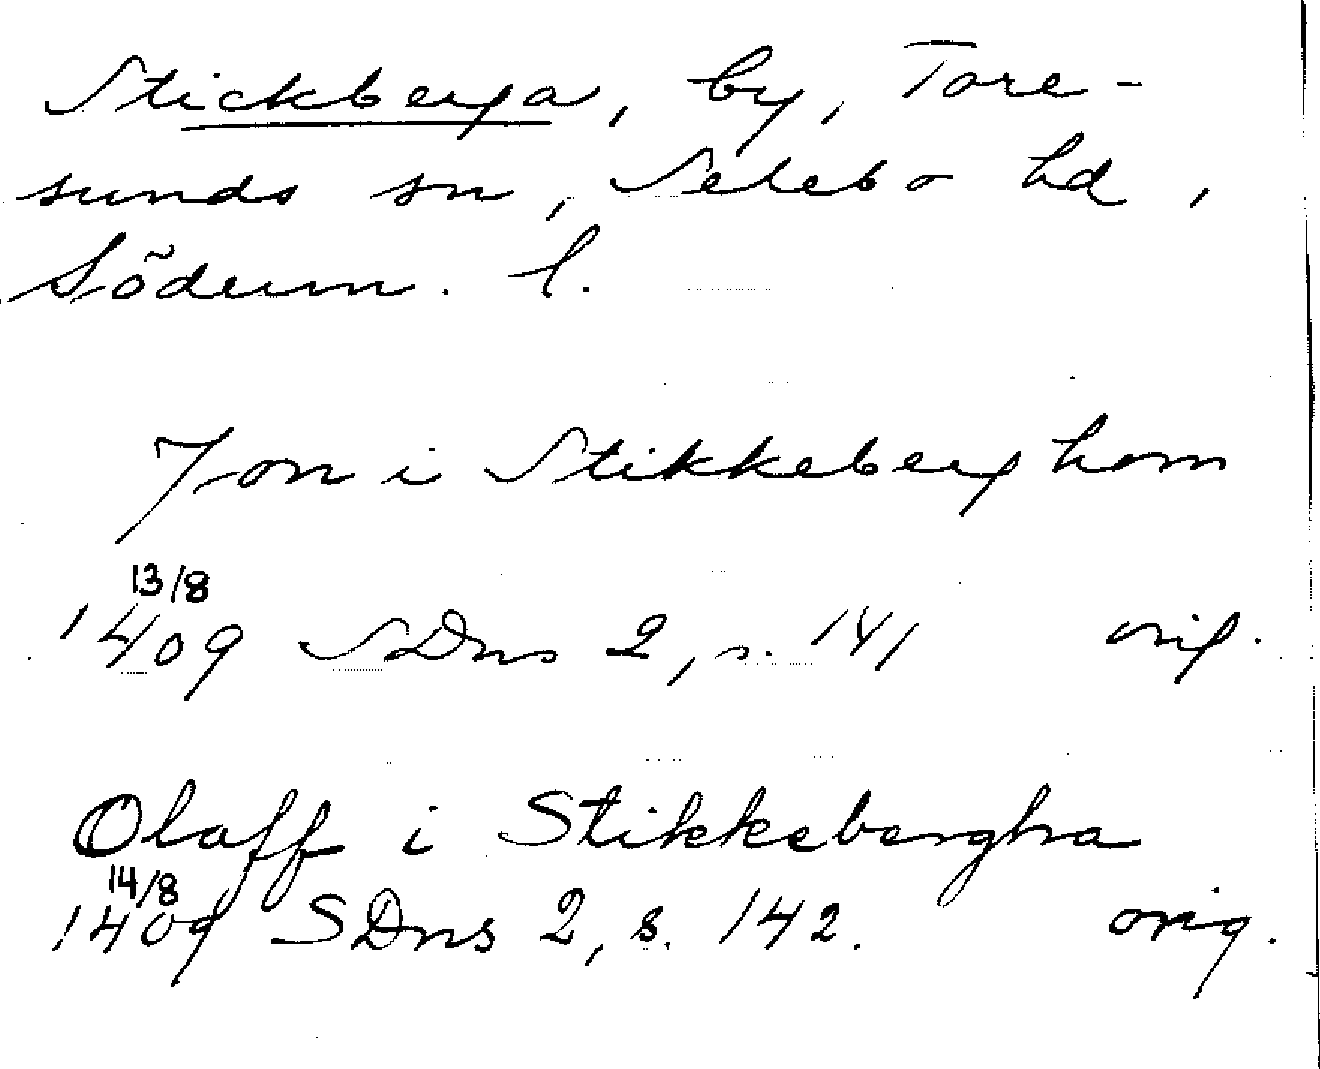 Stickberga, by, Tore-
sunds sn, Selebo hd,
Söderm. l.
Jon i Stikkeberghom
13/8
1409 SDns 2, s. 141 orig.
Olaff i Stikkebergha
14/8
1409 SDns 2, s. 142. orig.